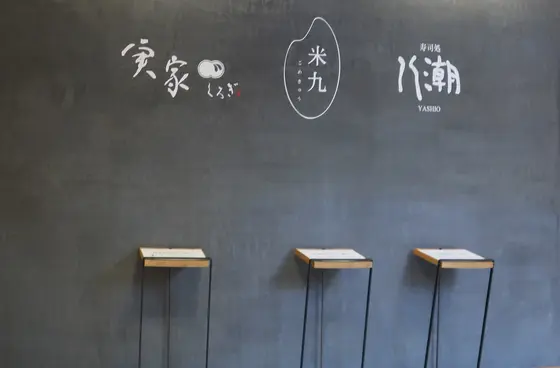 実家
くろぎ
米九
こめきゅう
寿司処
八潮
YASHIO